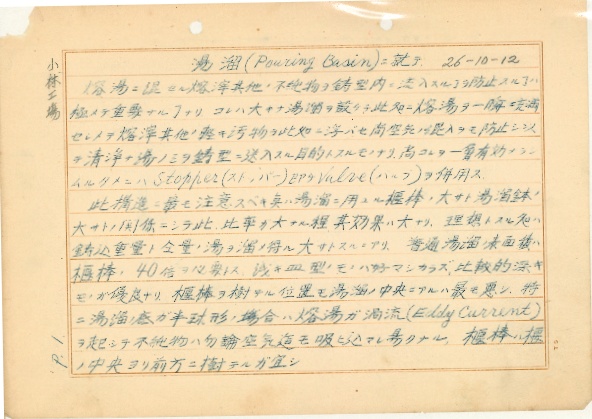 湯溜(Pouring Basin)ニ就テ 26-10-12
小林工場
熔湯ニ混セル熔滓其他ノ不純物ヲ鋳型内ニ流入スルヲ防止スルハ
極メテ重要ナル事ナリ コレハ大キナ湯溜ヲ設ケテ此処ニ熔湯ヲ一時
セシメテ熔滓其他ノ軽キ汚物ヲ此処ニ浮バセ尚空気ノ混入ヲモ防止シ
ヲ清浄ナ湯ノミヲ鋳型ニ送入スル目的トスルモノナリ、尚コレヲ一層有効ナラシ
ムルタメニハ Stopper(ストッパー)及ヲ Valve(バルブ)ヲ併用ス
此構造ニ最モ注意スベキ点ハ湯溜ニ用ユル榧棒ノ大サト湯溜鉢ノ
大サトノ関係ニシテ此ノ比率ガ大ナル程其効果ハ大ナリ、理想トスル処ハ
鋳込重量ト全量ノ湯ヲ溜メ得ル大サトスルニアリ、普通湯溜ノ表面積ハ
榧棒ノ 40倍ヲ必要トス、浅キ皿型ノモノハ好マシカラズ、比較的深キ
モノガ優良ナリ、榧棒ヲ樹テル位置モ湯溜ノ中央ニアルハ最モ悪シ、特
ニ湯溜ノ底ガ半球形ノ場合ハ熔湯ガ渦流(Eddy Current)
ヲ起シテ不純物ハ勿論空気迄モ吸ヒ込マレ易クナル、榧棒ハ榧
ノ中央ヨリ前方ニ樹テルガ宜シ
P.1.